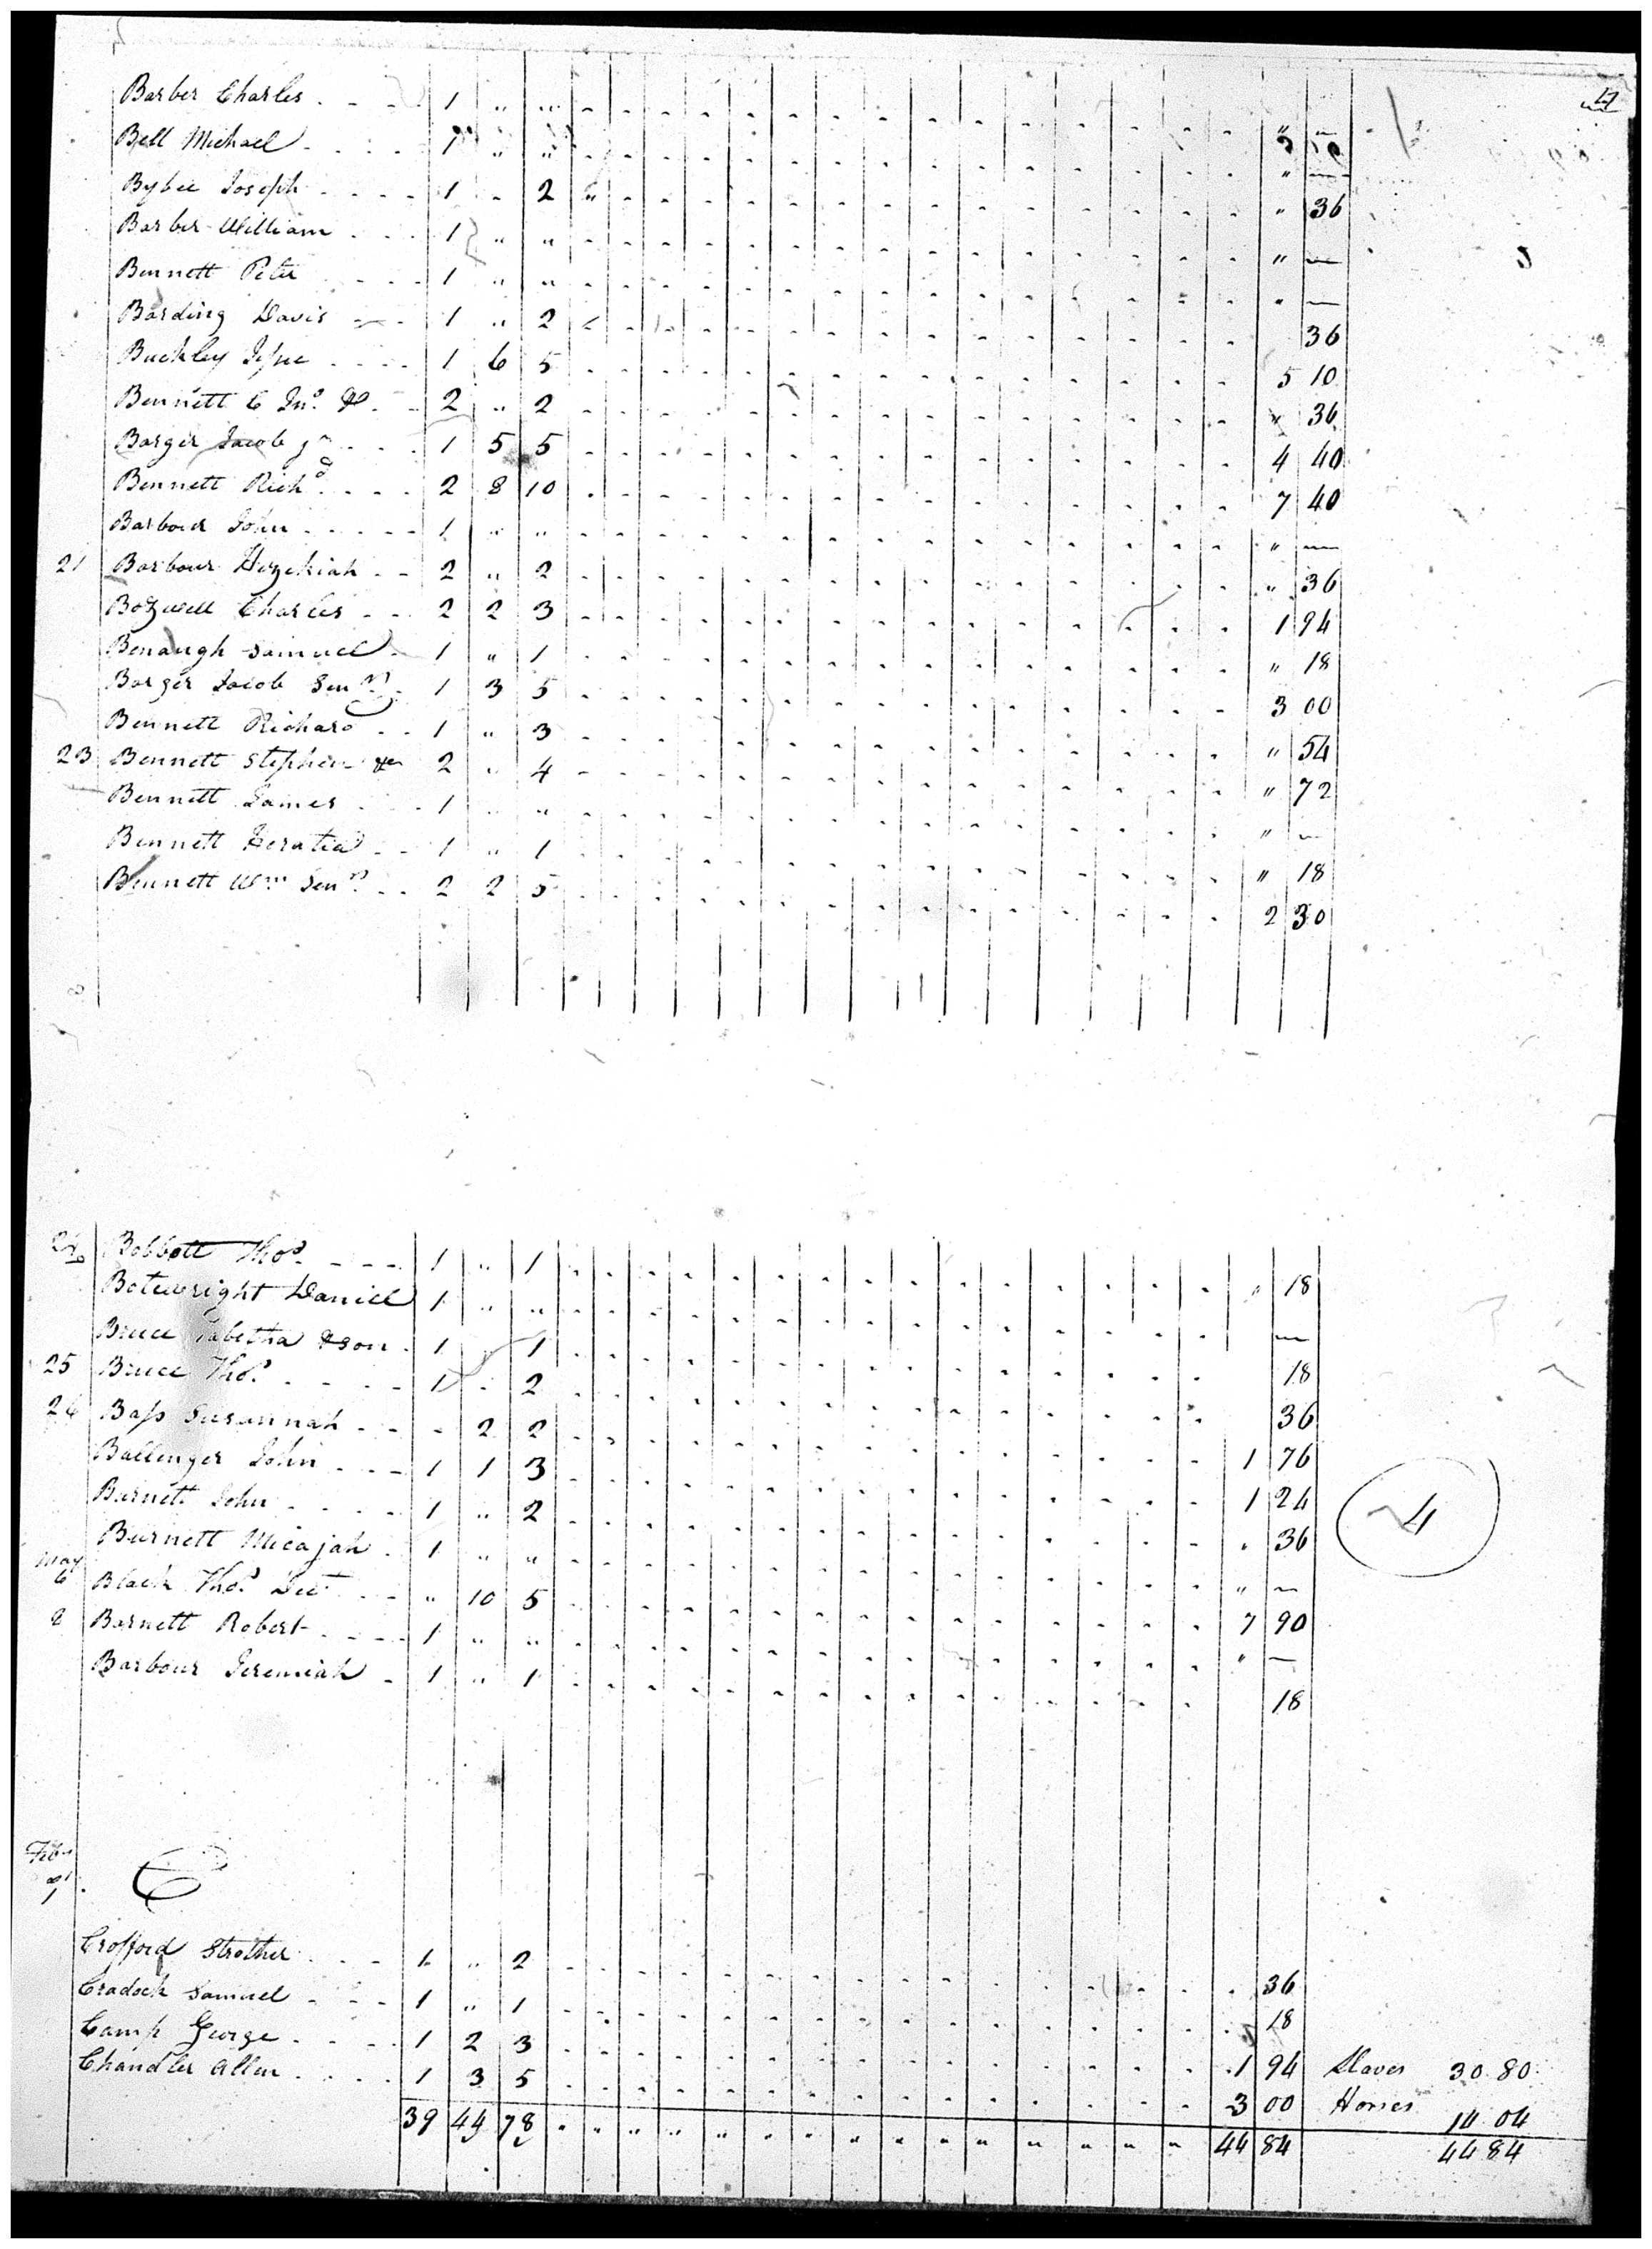 4
Barber Charles 1 " " " —
Bell Michael 1 " " " —
Bybee Joseph 1 - 2 " 36
Barber William 1 " " " —
Bennett Peter 1 " " " —
Barding Davis 1 " 2 36
Buckley Jesse 1 6 5 5 10
Bennett C Jno. 2 " 2 " 36
Barger Jacob jr 1 5 5 4 40
Bennett Richd. 2 8 10 7 40
Barbour John 1 " " " —
21 Barbour Hezekiah 2 " 2 " 36
Bozwell Charles 2 2 3 1 94
Benaugh Samuel 1 " 1 " 18
Barger Jacob Senr. 1 3 5 3 00
Bennett Richard 1 " 3 " 54
23 Bennett Stephen 2 " 4 " 72
Bennett James 1 " " " —
Bennett Horatio 1 " 1 " 18
Bennett Wm Senr. 2 2 5 2 30
Bobbott Thos. 1 " 1 " 18
Botewright Daniel 1 " " —
Bruce Tabetha & son 1 " 1 18
25 Bruce Thos. 1 " 2 36
26 Bass Susannah - 2 2 1 76
Ballenger John 1 1 3 1 24
Burnett John 1 " 2 " 36
4
Burnett Micajah 1 " " " —
May 6 Black Thos. Dec. " 10 5 7 90
8 Barnett Robert 1 " " " —
Barbour Jeremiah 1 " 1 18
Feby
C
Crofford Strother 1 " 2 36
Cradock Samuel 1 " 1 18
Camp George 1 2 3 1 94 Slaves 30.80
Chandler Allen 1 3 5 3 00 Horses 14 04
39 44 78 44 84 44 84